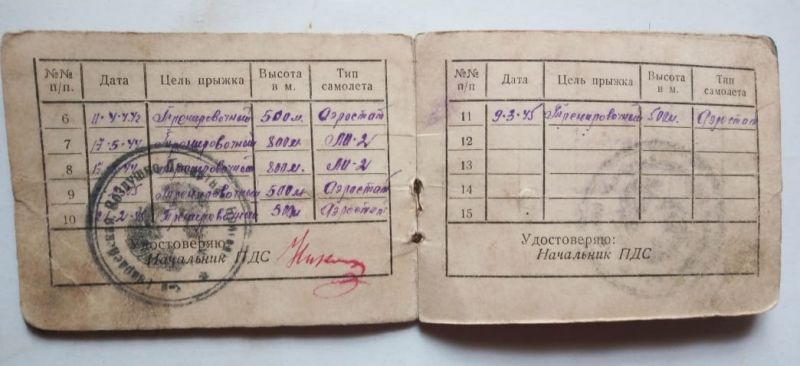 №№ п/п. Дата Цель прыжка Высота в м. Тип самолета
6 Тренировочный 500м. Аэростат
7 17-5-44 Тренировочный 800м ЛИ-2
8 Тренировочный 800м. ЛИ-2
9 Тренировочный 500м. Аэростат
10 Тренировочный 500м Аэростат
Удостоверяю:
Начальник ПДС
№№ п/п. Дата Цель прыжка Высота в м. Тип самолета
11 9-3-45 Тренировочный 500м. Аэростат
12
13
14
15
Удостоверяю:
Начальник ПДС